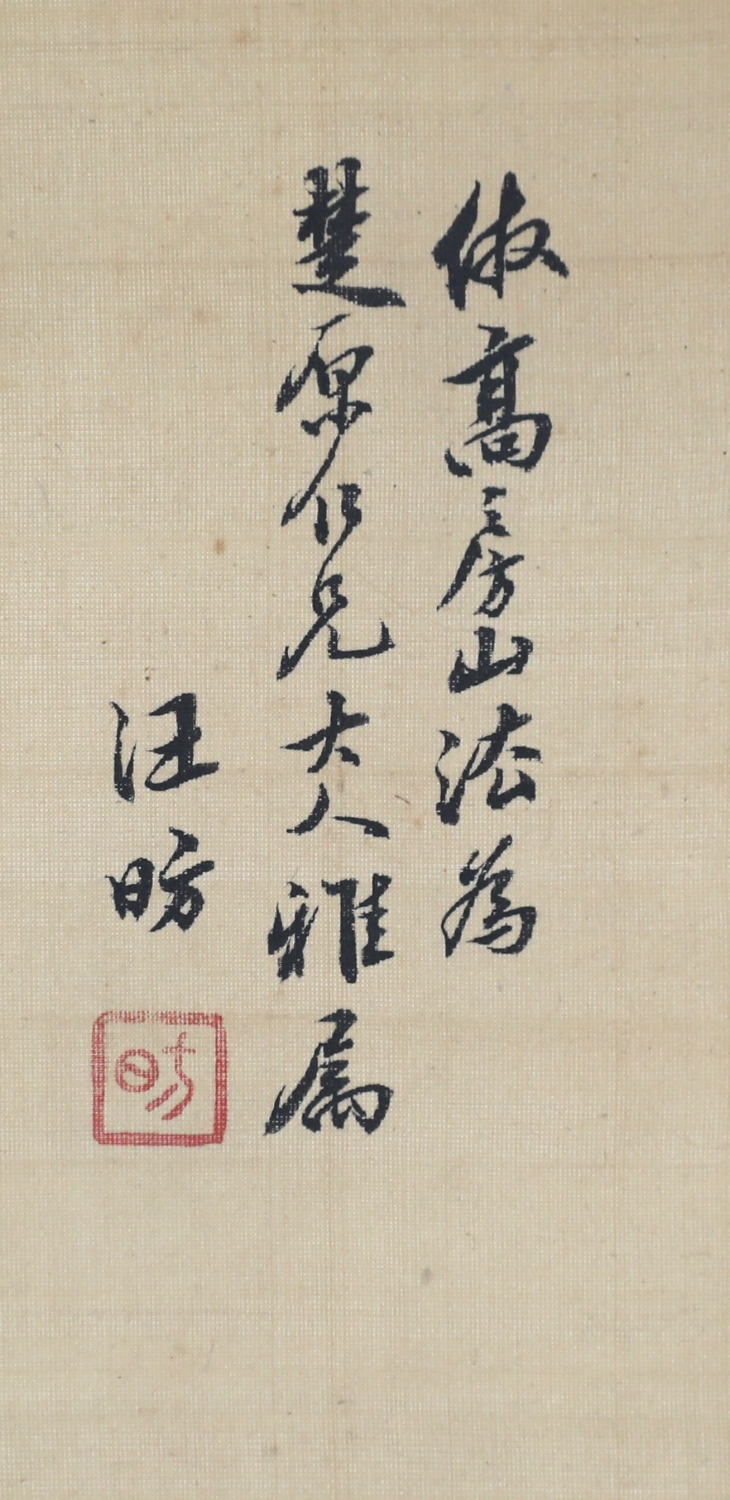 倣高房山法為
楚原仁兄大人雅属
汪昉
昉